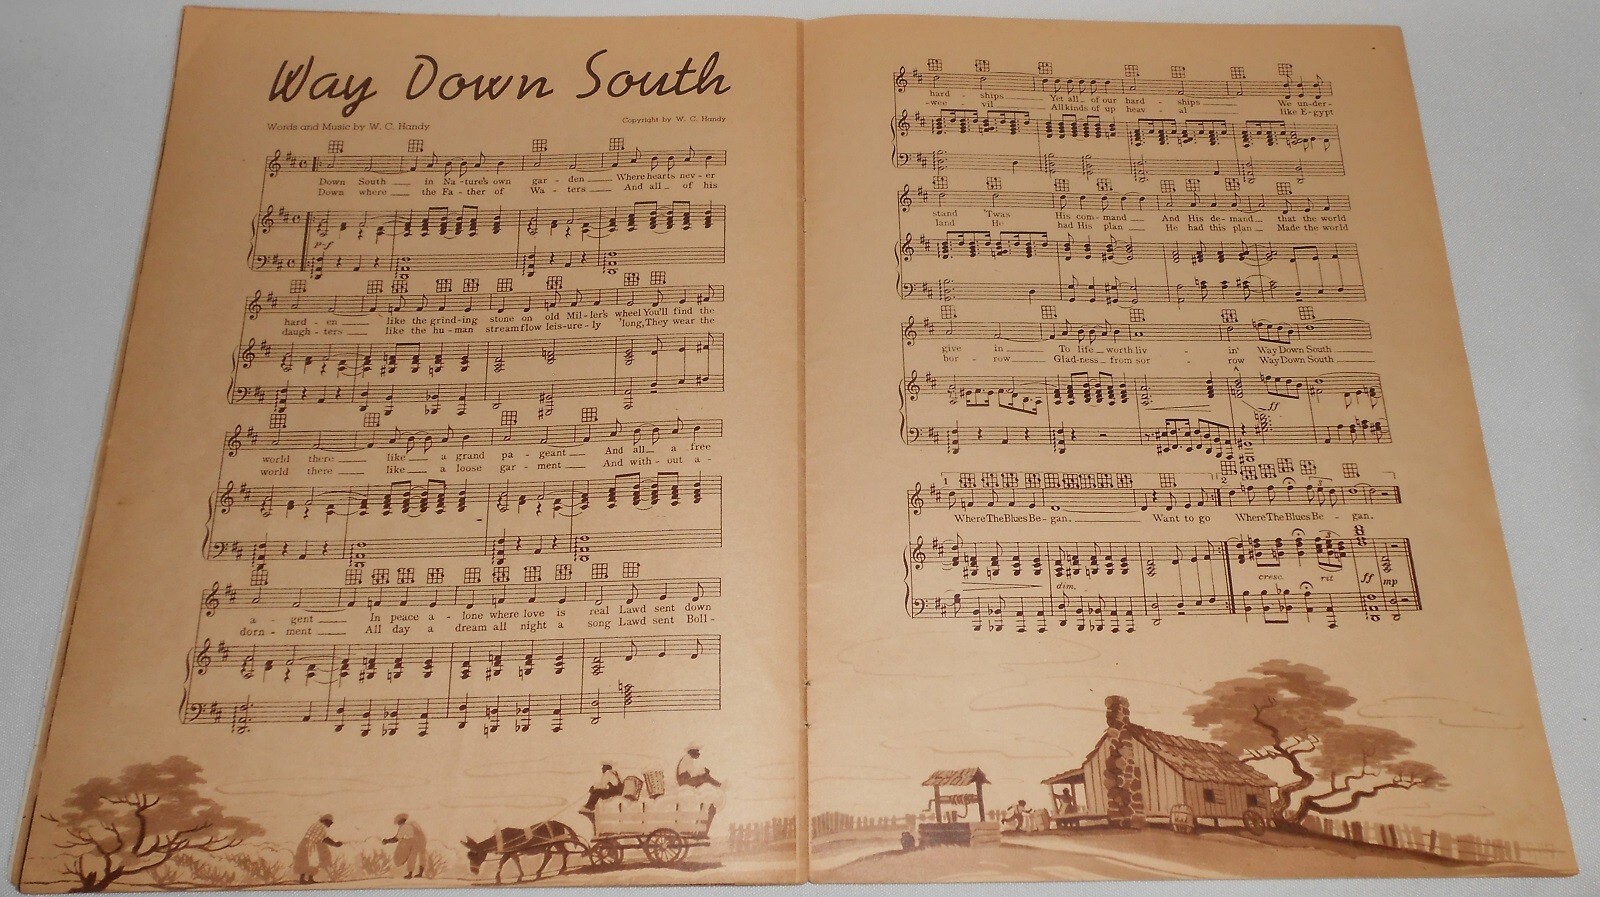 Way Down South
Words and Music by W. C. Handy
Copyright by W. C. Handy
Down South in Na-ture's own gar-den Where hearts nev-er
Down where the Fa-ther of Wa-ters And all of his
p-f
hard-en like the grind-ing stone on old Mil-ler's wheel You'll find the
daugh-ters like the hu-man stream flow leis-ure-ly 'long, They wear the
world there like a grand pa-geant And all a free
world there like a loose gar-ment And with-out a-
a-gent In peace a-lone where love is real Lawd sent down
dorn-ment All day a dream all night a song Lawd sent Boll-
hard-ships Yet all of our hard-ships We un-der-
-wee-vil All kinds of up heav-al like E-gypt
stand 'Twas His com-mand And His de-mand that the world
land He had His plan He had this plan Made the world
give in To life worth liv-in' Way Down South
bor-row Glad-ness from sor-row Way Down South
ff
1 2
3
Where The Blues Be-gan. Want to go Where The Blues Be-gan.
3
dim. cresc. rit. ff mp